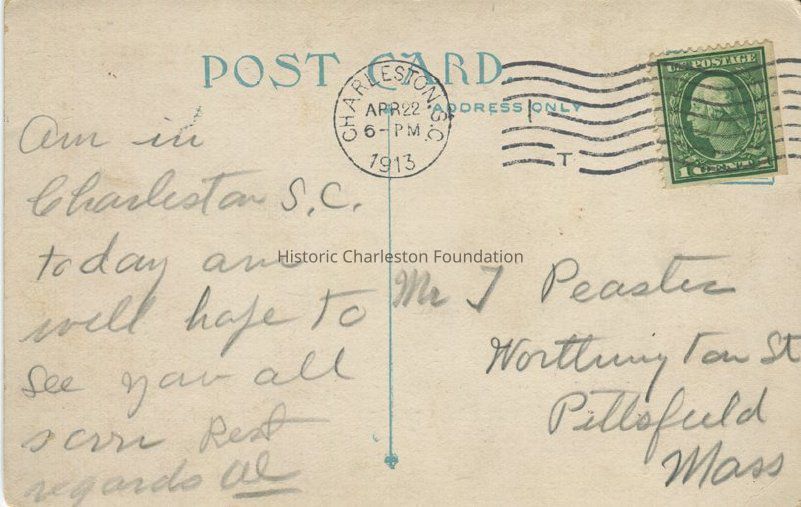 POST CARD.
CHARLESTON, S.C.
APR 22
6-PM
1913
ADDRESS ONLY
T
U.S. POSTAGE
1 CENT 1
Am in
Charleston S.C.
today am
well hope to
see you all
soon Best
regards Al
Historic Charleston Foundation
Mr J Peaster
Worthington St
Pittsfield
Mass